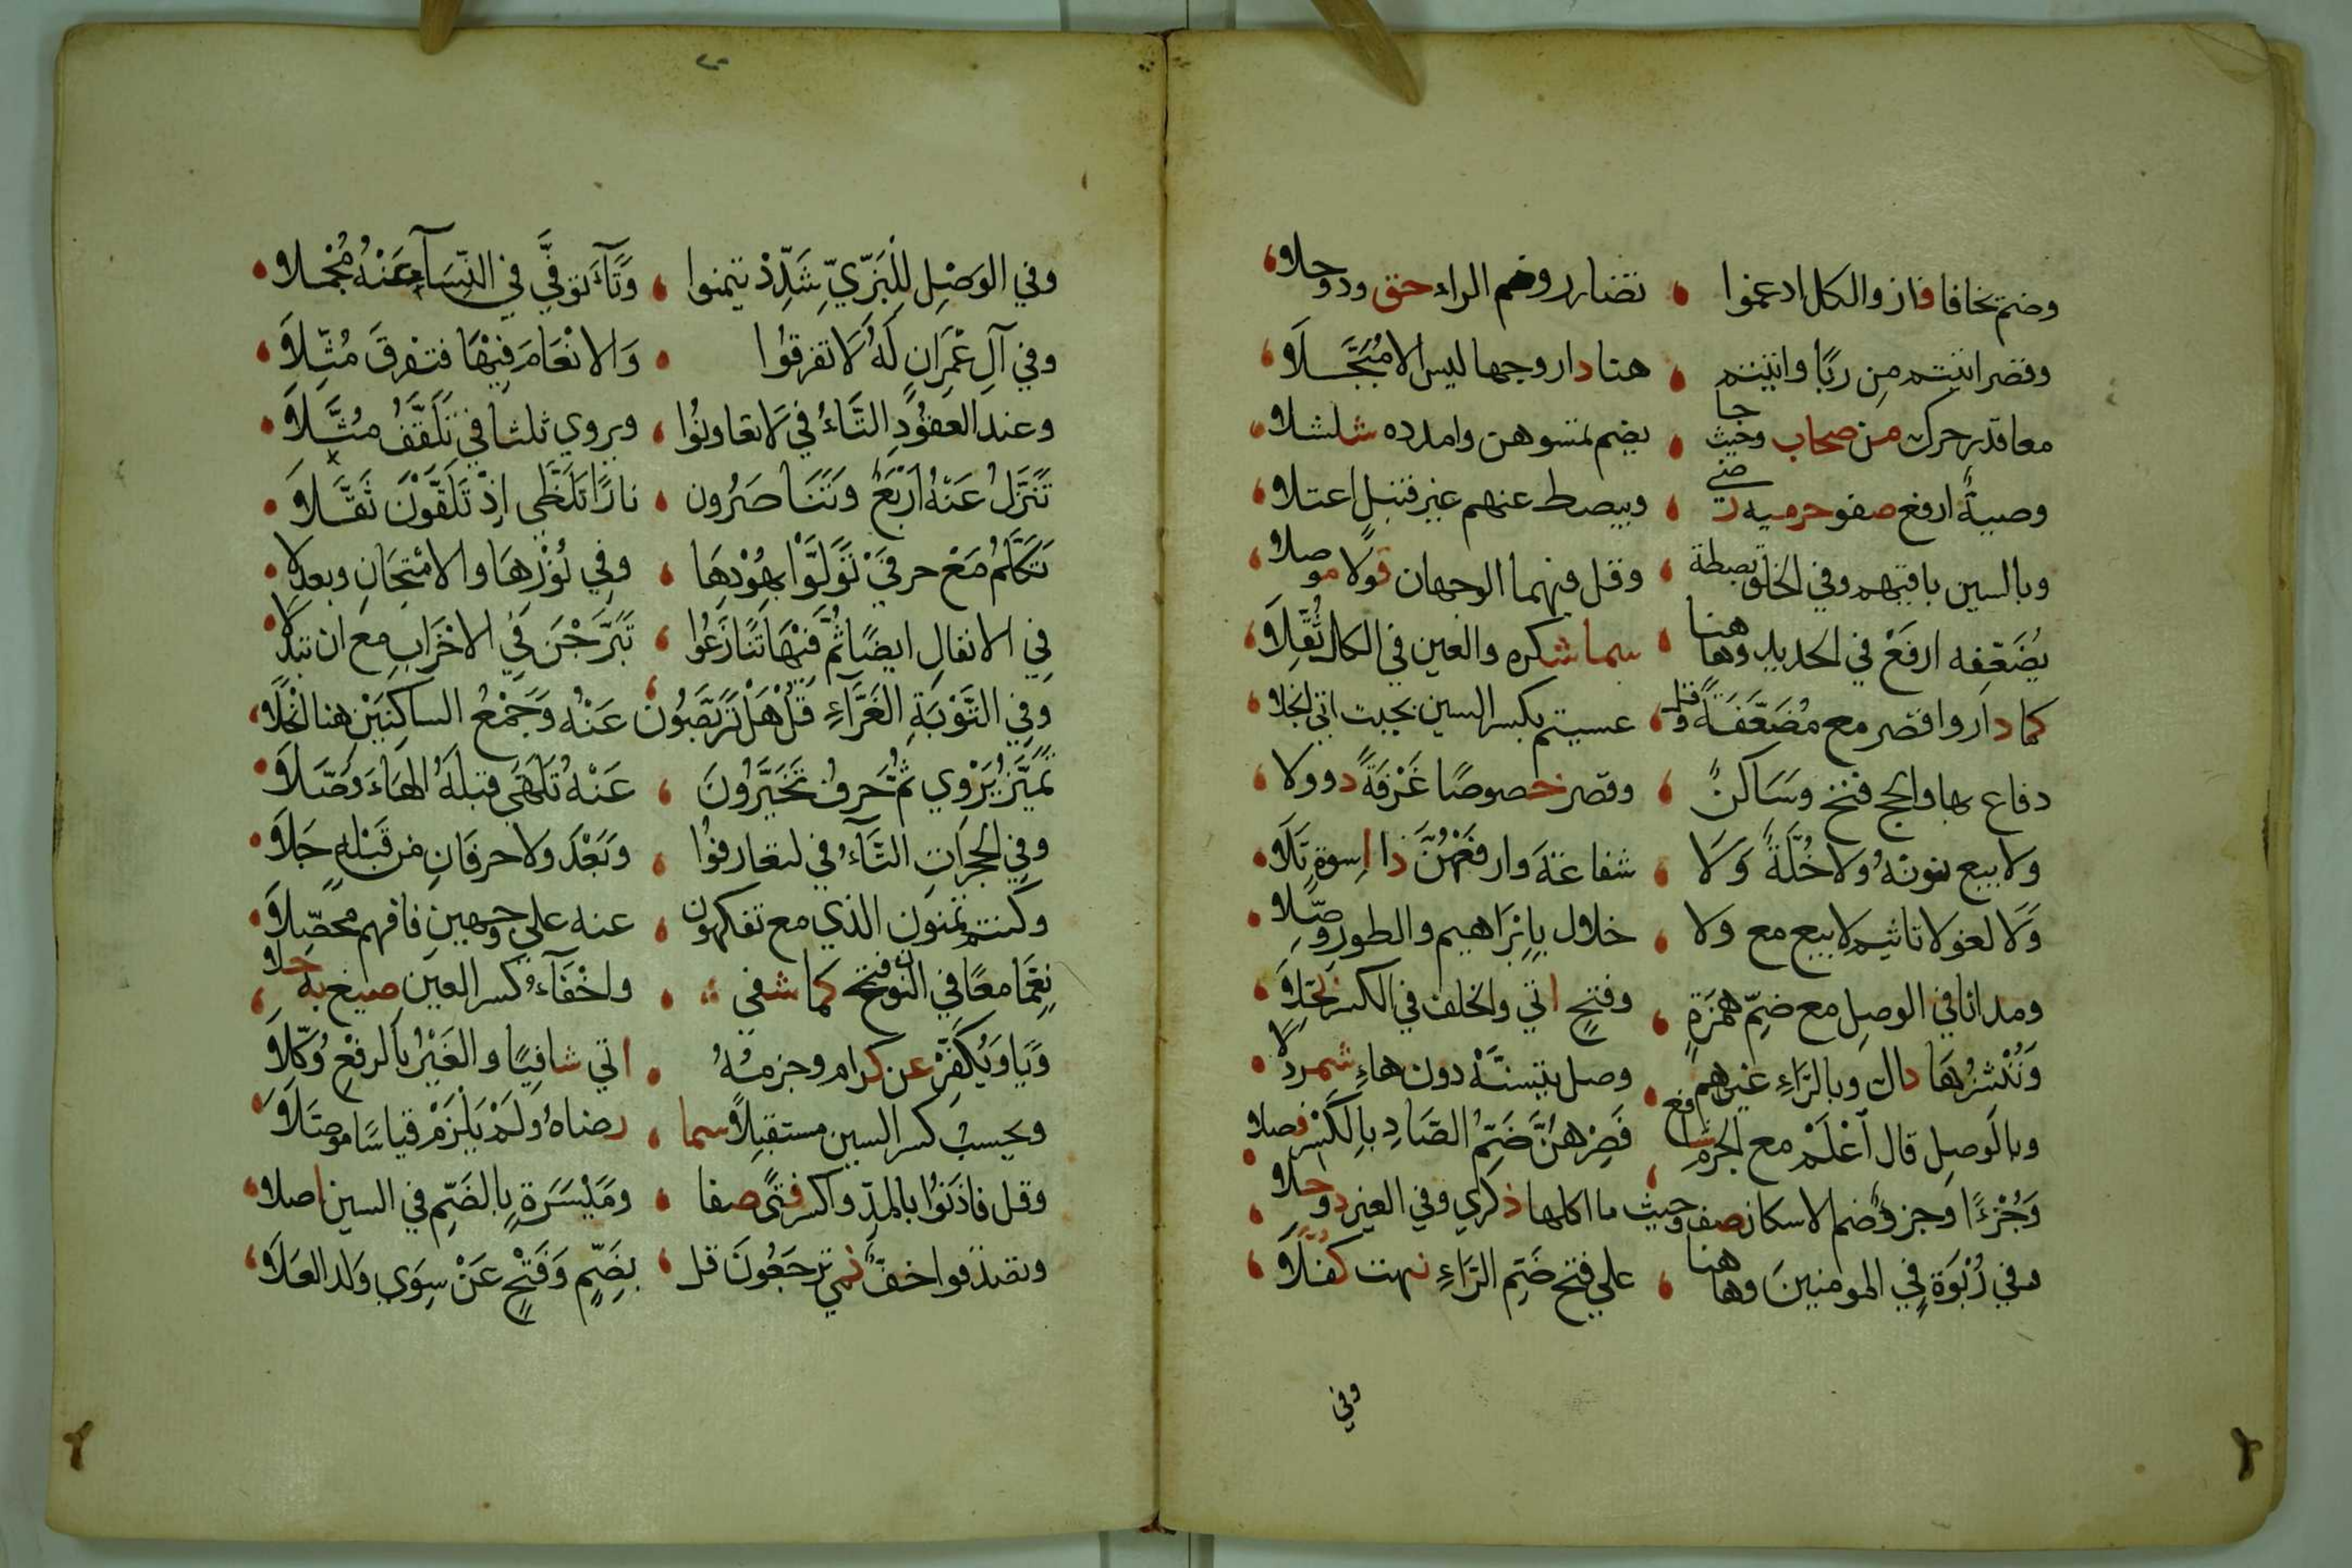 وضم يخافا فاز والكل ادغموا ، تضارر وضم الراء حق وذو جلا
وقصر اتيتم مِن ربًا واتيتم ، هنا دار وجها ليس الا مُبَجَّلَا
معا قدر حرك من صحاب وحيث جا ، يضم تمسوهن وامدده شلشلا
وصيةٌ ارفع صفو حرميه رضى ، ويبصط عنهم غير قنبل اعتلا
وبالسين باقيهم وفي الخلق بصطة ، وقل فيهما الوجهان قولًا موصلا
يُضَعّفه ارفَعْ في الحديد وهاهنا ، سما شكره والعين في الكل ثُقّلَا
كما دار واقصر مع مُضَعَّفَةً وقل ، عسيتم بكسر السين حيث اتى انجلا
دفاع بها والحج فتح وَسَاكنٌ ، وقصر خصوصًا غَرْفَةً ذو ولا
ولا بيع نونهُ ولا خُلَّةً وَلَا ، شفاعةَ وارفعْهُنَّ ذا اِسوةٍ تَلَا
وَلَا لغو لا تاثيم لا بيع مع ولا ، خلال بِإِبْرَاهيم والطور وصّلا
ومد انا في الوصل مع ضمّ همزةٍ ، وفتحٍ اتى والخلف في الكسر بُجّلَا
وَنُنْشزُهَا ذاك وبالرَّاءِ غيرهم ، وصل يتسنَّهْ دون هاءٍ شمردلا
وبالوصل قال اعْلَمْ مع الجزم شافع ، فَصِرْهنَّ ضَمُّ الصَّادِ بالكَسْرِ فصلا
وَجُزْءًا وجزءٌ ضم الاسكان صف وحيث ، ما اكلها ذكرى وفي الغير ذو حلا
وفي رُبْوَةٍ في المومنينَ وهاهنا ، على فتح ضَمِّ الرَّاءِ نبهت كُفَّلَا
وفي
وفي الوَصْلِ لِلْبَزّيِّ شَدِّدْ تيمموا ، وَتَآءَ توفَّى في النِّسَآءِ عَنْهُ مُجْملا
وفي آلِ عِمْرَانٍ لَهُ لَا تفرقُوا ، وَالانْعَامَ فِيْهَا فتفْرقَ مُثّلَا
وعند العقُودِ التَّاءُ في لَا تعاونُوا ، ويروي ثلثا في تَلَقَّفُ مُثَّلَا
تَنَزَّلُ عَنْهُ اَرْبَعٌ وتَنَاصَرُون ، نارًا تَلَظَّى اِذْ تَلَقَّوْنَ ثَقَّلَا
تَكَلَّمُ مَعْ حرفَيْ تَوَلَّوْا بهُوْدِهَا ، وفِي نُوْرِهَا والامْتِحَانِ وبعد لا
في الانفالِ ايضًا ثُمَّ فِيْهَا تَنَازَعُوا ، تَبَرَّجْنَ في الاحْزَابِ مع ان تبدلا
وفِي التَّوْبَةِ الغَرَّآءِ قُلْ هَلْ تَرَبَّصُوْنَ ، عَنْهُ وَجَمْعُ الساكنَيْنِ هنا انْجَلَا
تَمَيَّزُ يَرْوِي ثُمَّ حَرفُ تَخَيَّرُونَ ، عَنْهُ تَلَهَّى قبلهُ الهَاءَ وَصَّلَا
وفي الحجرَاتِ التَّآءُ في لتعارفوُا ، وَبَعْدَ ولا حرفانِ من قَبْلهِ جَلَا
وكنتم تمنون الذي مع تفكهون ، عنه على وجهين فافهم محصّلَا
نِعِمَّا معًا في النون فتح كما شفى ، واخْفَآءُ كسر العين صيغ به حلا
وَيَا وَيُكَفِّرْ عن كرام وجزمُهُ ، اتى شافِيًا والغَيْرُ بالرفعِ وُكّلَا
ويحسبُ كسر السين مستقبلًا سما ، رضاهُ وَلَمْ يَلْزَمْ قياسًا موصَّلَا
وقل فاذنوُا بالمدِّ واكسر فتًى صفا ، ومَيْسَرَةٍ بالضَمِّ في السين اصلا
وتصدّقوا خفٌّ نمى تَرجَعُونَ قل ، بضَمٍّ وَفَتْحٍ عَنْ سِوَى ولد العَلَا